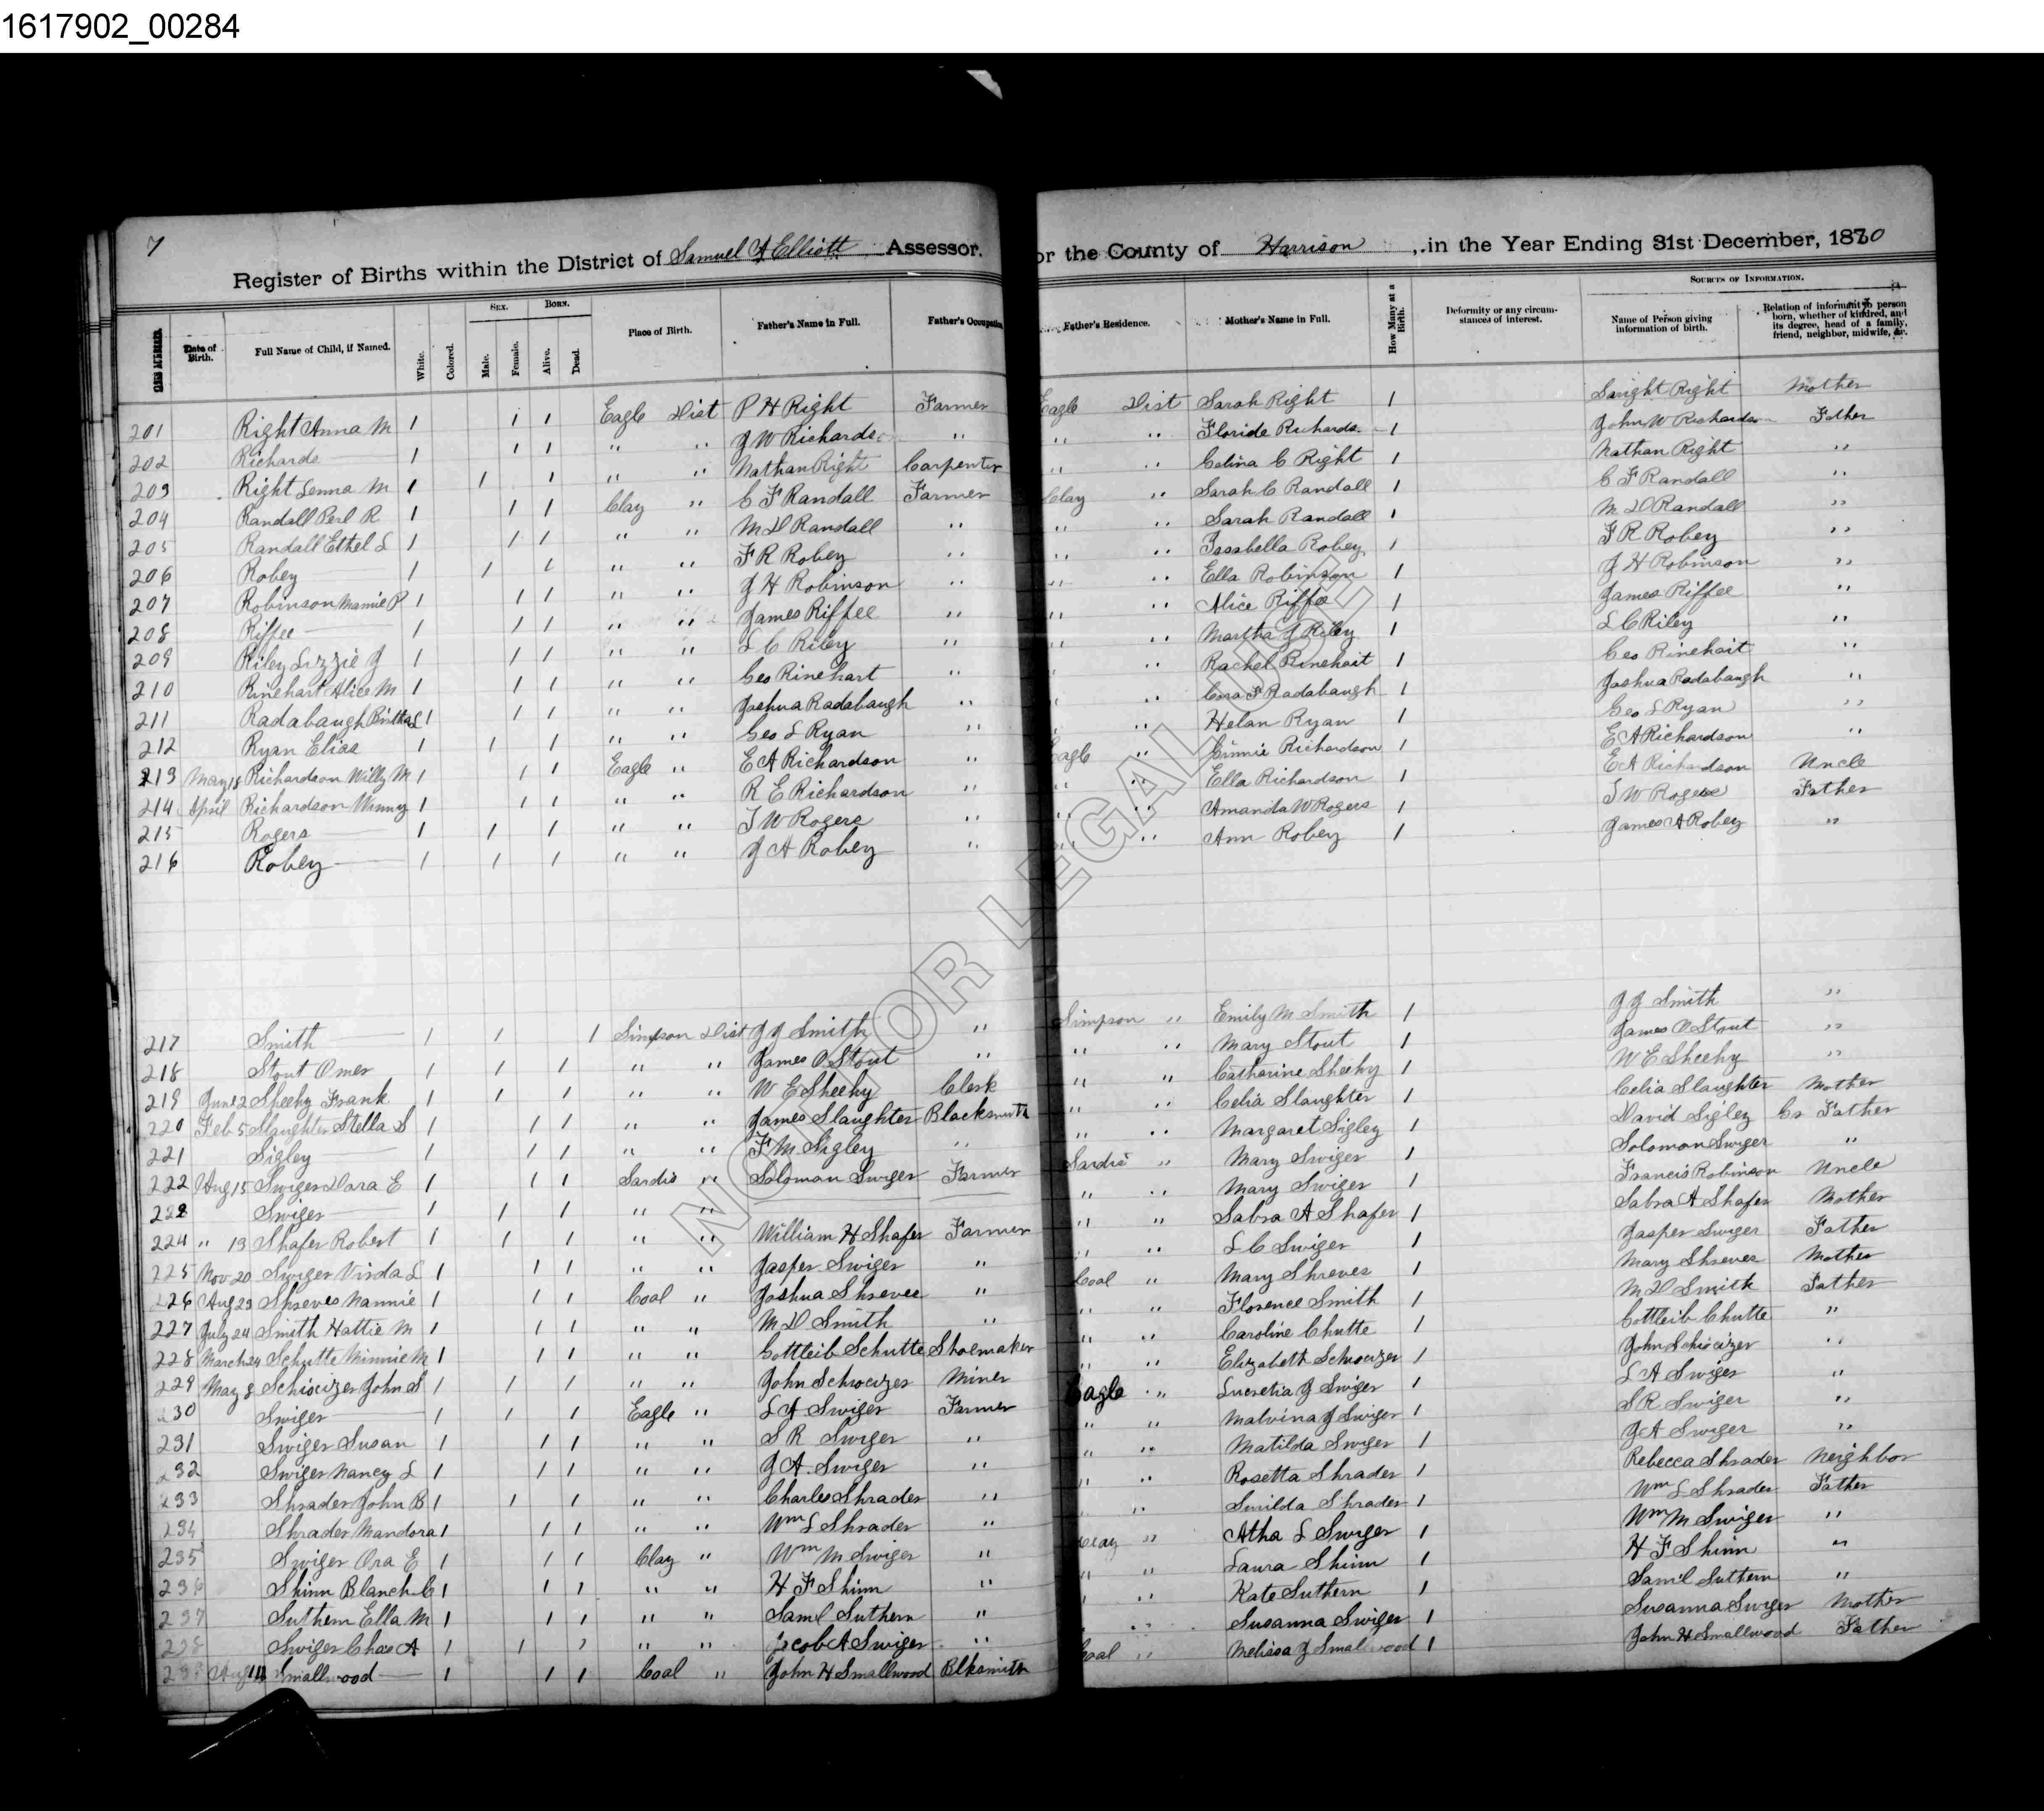 1617902_00284
7
Register of Births within the District of Samuel A Elliott Assessor. or the County of Harrison, in the Year Ending 31st December, 1870
Date of Birth. Full Name of Child, if Named. White. Colored. Sex. Male. Female. Born. Alive. Dead. Place of Birth. Father's Name in Full. Father's Occupation Father's Residence. Mother's Name in Full. How Many at a Birth. Deformity or any circumstances of interest. Sources of Information. Name of Person giving information of birth. Relation of informant to person born, whether of kindred, and its degree, head of a family, friend, neighbor, midwife, &c.
201 Right Anna M 1 1 1 Eagle Dist P H Right Farmer Eagle Dist Sarah Right 1 Right Mother
202 Richards 1 1 1 " " J W Richards " " " Floride Richards 1 John W Richardson Father
203 Right Lenna M 1 1 1 " " Nathan Right Carpenter " " Celina C Right 1 Nathan Right "
204 Randall Perl R 1 1 1 Clay " C F Randall Farmer Clay " Sarah C Randall 1 C F Randall "
205 Randall Ethel L 1 1 1 " " M D Randall " " " Sarah Randall 1 M D Randall "
206 Robey 1 1 1 " " F R Robey " " " Issabella Robey 1 F R Robey "
207 Robinson Mamie P 1 1 1 " " J H Robinson " " " Ella Robinson 1 J H Robinson "
208 Riffee 1 1 1 " " James Riffee " " " Alice Riffee 1 James Riffee "
209 Riley Lizzie J 1 1 1 " " L C Riley " " " Martha J Riley 1 L C Riley "
210 Rinehart Alice M 1 1 1 " " Geo Rinehart " " " Rachel Rinehart 1 Geo Rinehart "
211 Radabaugh Birtha L 1 1 1 " " Joshua Radabaugh " " Cora F Radabaugh 1 Joshua Radabaugh "
212 Ryan Elias 1 1 1 " " Geo L Ryan " " Helan Ryan 1 Geo L Ryan "
213 May 18 Richardson Willy M 1 1 1 Eagle " E A Richardson " Eagle " Richardson 1 E A Richardson "
214 April Richardson Winny 1 1 1 " " R E Richardson " " Ella Richardson 1 E A Richardson Uncle
215 Rogers 1 1 1 " " T W Rogers " " " Amanda W Rogers 1 T W Rogers Father
216 Robey 1 1 1 " " J A Robey " " " Ann Robey 1 James A Robey "
217 Smith 1 1 1 Simpson Dist J J Smith " Simpson " Emily M Smith 1 J J Smith "
218 Stout Omer 1 1 1 " " James O Stout " " " Mary Stout 1 James O Stout "
219 June 2 Sheehy Frank 1 1 1 " " W E Sheehy Clerk " " Catharine Sheehy 1 W E Sheehy "
220 Feb 5 Slaughter Stella S 1 1 1 " " James Slaughter Blacksmith " " Celia Slaughter 1 Celia Slaughter Mother
221 Sigley 1 1 1 " " F M Sigley " " " Margaret Sigley 1 David Sigley Gr Father
222 Aug 15 Swiger Dora E 1 1 1 Sardis " Soloman Swiger Farmer Sardis " Mary Swiger 1 Solomon Swiger "
223 Swiger 1 1 1 " " " " Mary Swiger 1 Francis Robinson Uncle
224 " 13 Shafer Robert 1 1 1 " " William H Shafer Farmer " " Sabra A Shafer 1 Sabra A Shafer Mother
225 Nov 20 Swiger Virda L 1 1 1 " " Jasper Swiger " " " L C Swiger 1 Jasper Swiger Father
226 Aug 23 Shreves Nannie 1 1 1 Coal " Joshua Shreves " Coal " Mary Shreves 1 Mary Shreves Mother
227 July 24 Smith Hattie M 1 1 1 " " M D Smith " " " Florence Smith 1 M D Smith Father
228 March 24 Schutte Minnie M 1 1 1 " " Gottleib Schutte Shoemaker " " Caroline Chutte 1 Gottleib Chutte "
229 May 8 Schweizer John S 1 1 1 " " John Schweizer Miner " " Elizabeth Schweizer 1 John Schweizer "
230 Swiger 1 1 1 Eagle " L A Swiger Farmer Eagle " Lucretia J Swiger 1 L A Swiger "
231 Swiger Susan 1 1 1 " " S R Swiger " " " Malvina J Swiger 1 S R Swiger "
232 Swiger Nancy L 1 1 1 " " J A. Swiger " " " Matilda Swiger 1 J A Swiger "
233 Shrader John B 1 1 1 " " Charles Shrader " " " Rosetta Shrader 1 Rebecca Shrader Neighbor
234 Shrader Mandora 1 1 1 " " Wm L Shrader " " Smilda Shrader 1 Wm L Shrader Father
235 Swiger Ora E 1 1 1 Clay " Wm M Swiger " Clay " Atha L Swiger 1 Wm M Swiger "
236 Shinn Blanch C 1 1 1 " " H F Shinn " " " Laura Shinn 1 H F Shinn "
237 Suthern Ella M 1 1 1 " " Saml Suthern " " Kate Suthern 1 Saml Suthern "
238 Swiger Chas A 1 1 1 " " Jacob A Swiger " " Susanna Swiger 1 Susanna Swiger Mother
239 Aug 14 Smallwood 1 1 1 Coal " John H Smallwood Blksmith Coal " Melissa J Smallwood 1 John H Smallwood Father
NOT FOR LEGAL USE